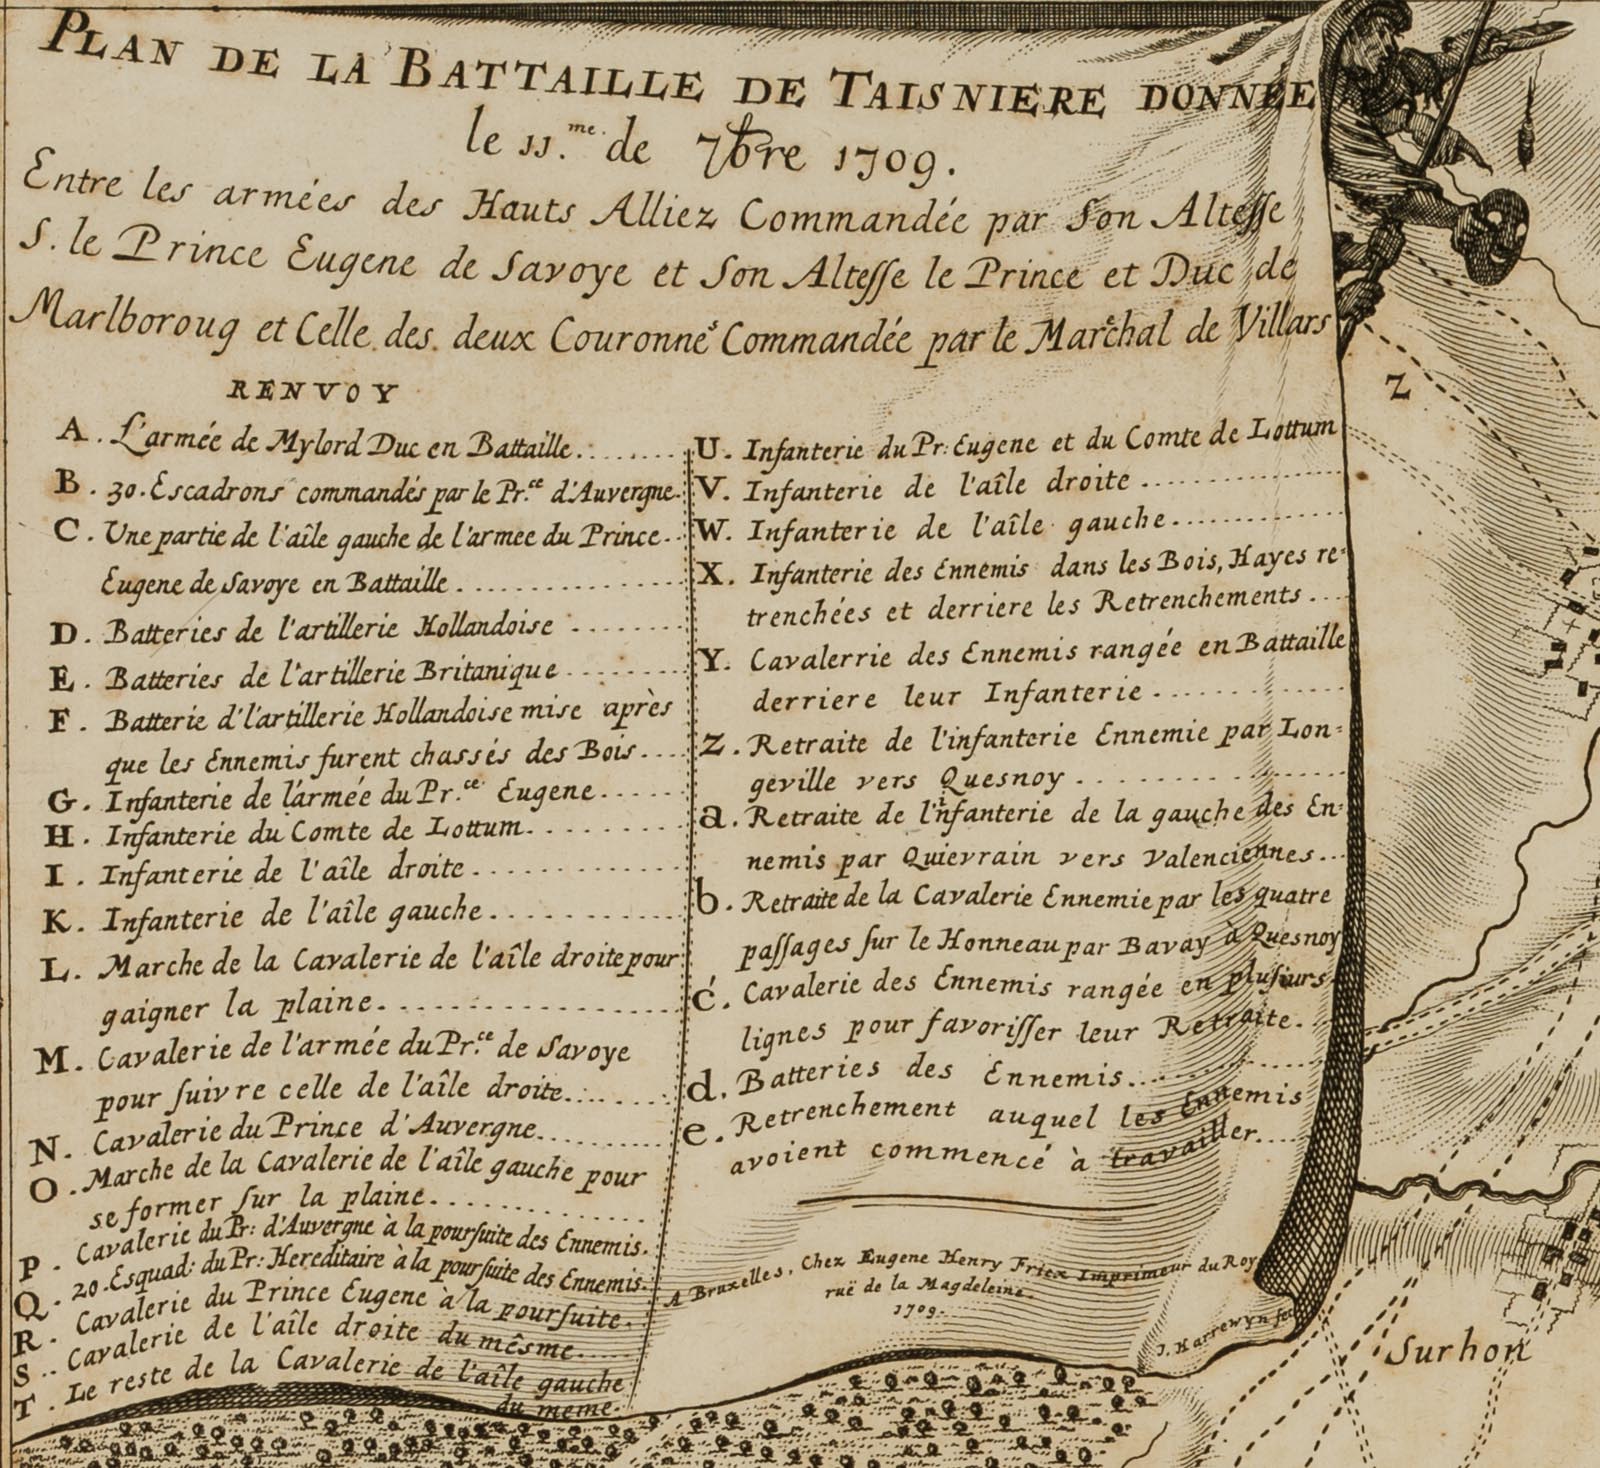 PLAN DE LA BATTAILLE DE TAISNIERE DONNÉE
le 11.me de 7bre 1709.
Entre les armées des Hauts Alliez Commandée par Son Altesse
S. le Prince Eugene de Savoye et Son Altesse le Prince et Duc de
Marlboroug et Celle des deux Couronnes Commandée par le Marechal de Villars
RENVOY
A. L'armée de Mylord Duc en Battaille........
B. 30. Escadrons commandés par le Pr.ce d'Auvergne.
C. Une partie de l'aîle gauche de l'armee du Prince..
Eugene de Savoye en Battaille................
D. Batteries de l'artillerie Hollandoise ........
E. Batteries de l'artillerie Britanique.........
F. Batterie d'l'artillerie Hollandoise mise après
que les Ennemis furent chassés des Bois....
G. Infanterie de l'armée du Pr.ce Eugene......
H. Infanterie du Comte de Lottum..........
I. Infanterie de l'aîle droite..............
K. Infanterie de l'aîle gauche.............
L. Marche de la Cavalerie de l'aîle droite pour
gaigner la plaine....................
M. Cavalerie de l'armée du Pr.ce de Savoye
pour suivre celle de l'aîle droite........
N. Cavalerie du Prince d'Auvergne..........
O. Marche de la Cavalerie de l'aîle gauche pour
se former sur la plaine..............
P. Cavalerie du Pr: d'Auvergne a la poursuite des Ennemis.
Q. 20. Esquad: du Pr: Hereditaire à la poursuite des Ennemis.
R. Cavalerie du Prince Eugene à la poursuite.
S.. Cavalerie de l'aîle droite du mêsme.....
T. Le reste de la Cavalerie de l'aîle gauche
du meme.
U. Infanterie du Pr: Eugene et du Comte de Lottum
V. Infanterie de l'aîle droite..............
W. Infanterie de l'aîle gauche.............
X. Infanterie des Ennemis dans les Bois, Hayes re=
trenchées et derriere les Retrenchements....
Y. Cavalerrie des Ennemis rangée en Battaille
derriere leur Infanterie.............
Z. Retraite de l'infanterie Ennemie par Lon=
geville vers Quesnoy..................
a. Retraite de l'infanterie de la gauche des En=
nemis par Quievrain vers Valenciennes...
b. Retraite de la Cavalerie Ennemie par les quatre
passages sur le Honneau par Bavay à Quesnoy
ć. Cavalerie des Ennemis rangée en plusiurs
lignes pour favorisser leur Retraite...
d. Batteries des Ennemis............
e. Retrenchement auquel les Ennemis
avoient commencé à travailler....
A Bruxelles, Chez Eugene Henry Fricx Imprimeur du Roy
ruë de la Magdeleine.
1709.
J. Harrewyn fec.
Z
Surhon